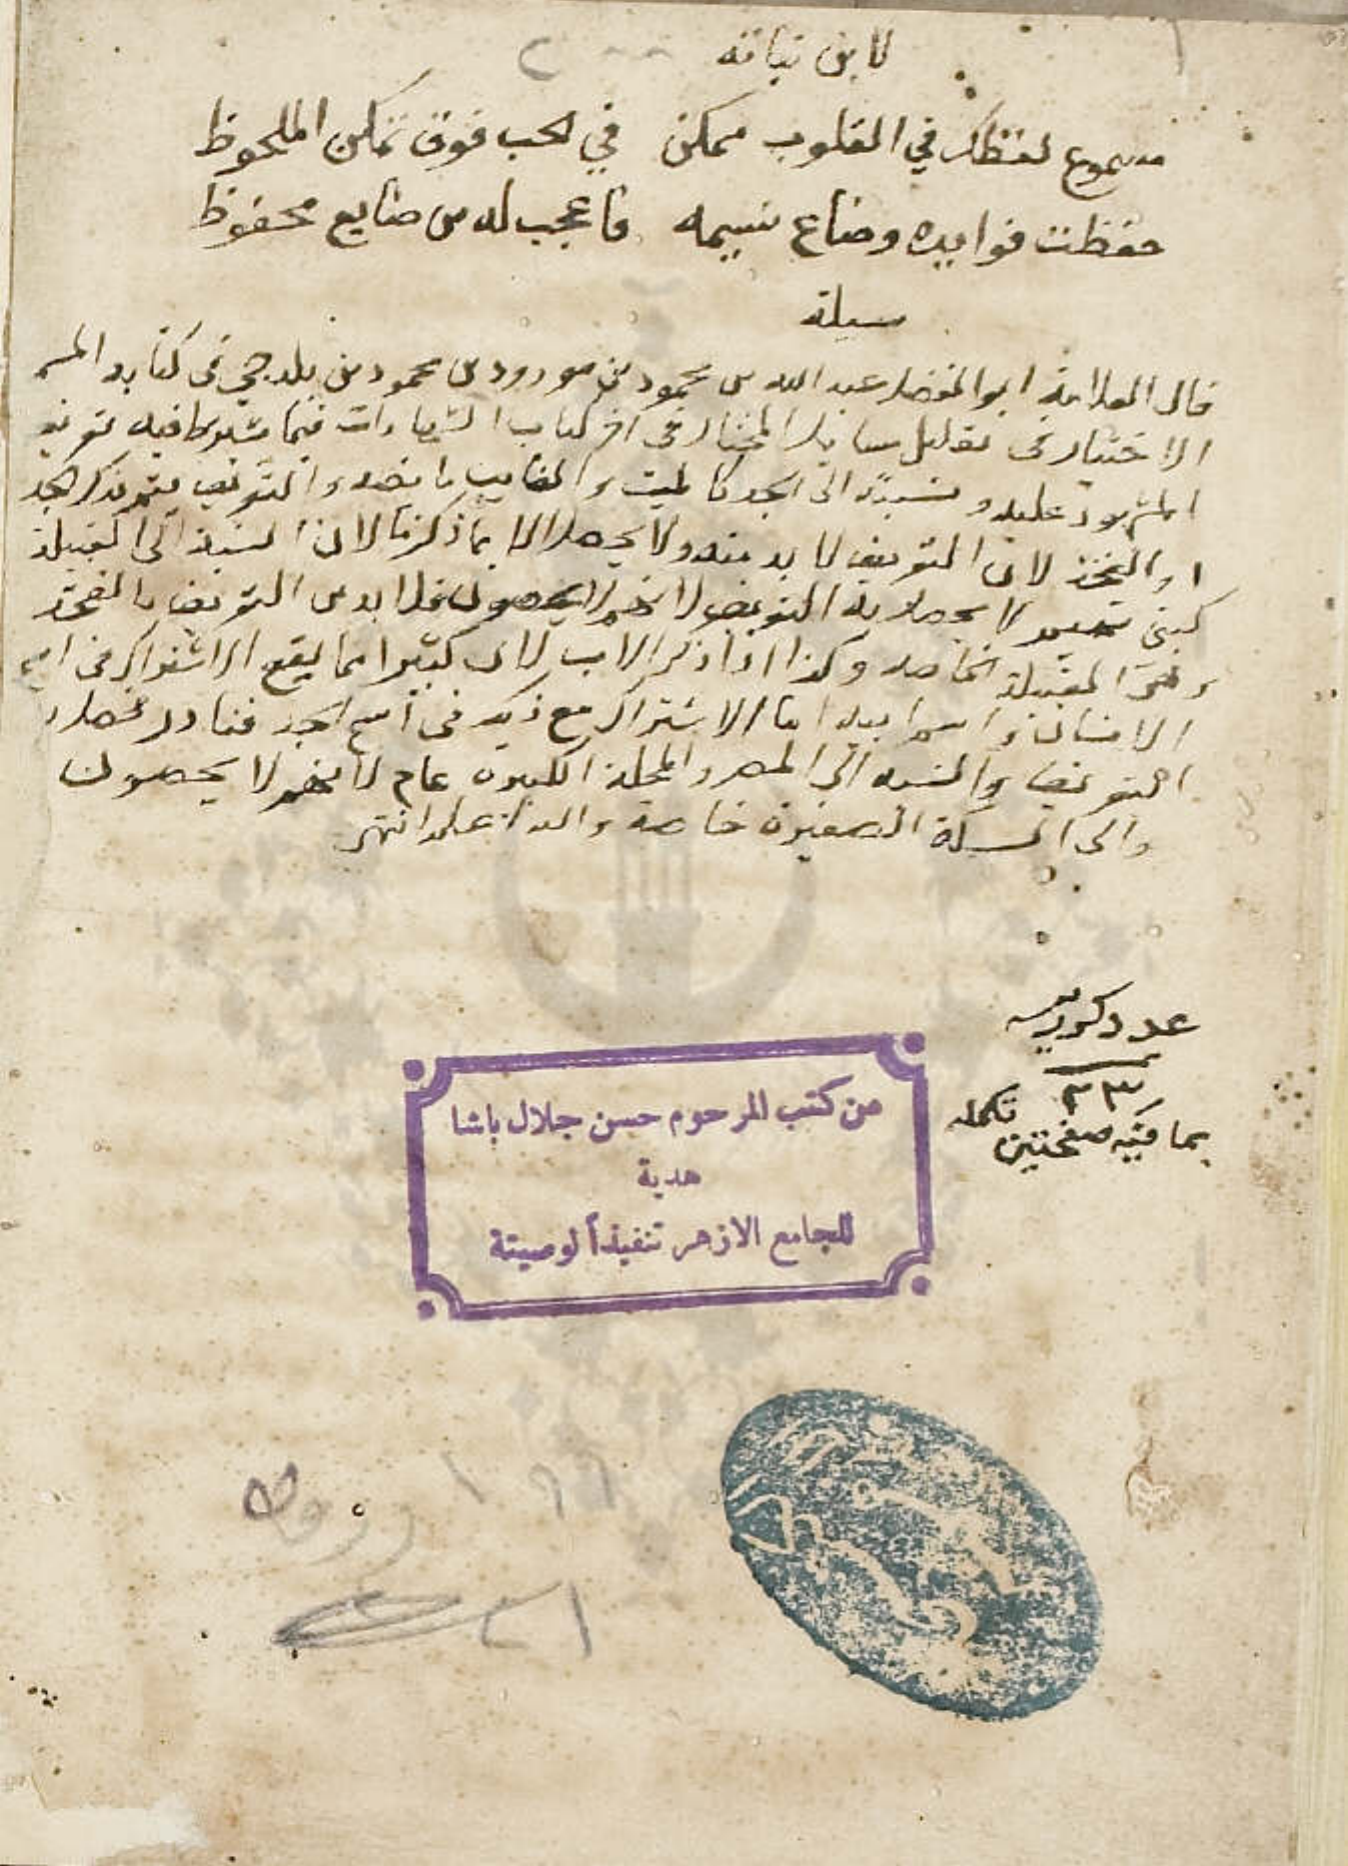 لابن نباته
مسموع لفظك في القلوب ممكن في الحب فوق تمكن الملحوظ
حفظت فوايده وضاع نسيمه فاعجب له من ضايع محفوظ
مسيلة
قال العلامة ابو الفضل عبد الله بن محمود بن مودود بن محمود بن بلدجي في كتابه
الاختيار في تعليل المختار في اخر كتاب الشهادات فيما يشترط فيه
المشهود عليه ونسبته الى الجد كالميت والغايب والتعريف يتم بذكر الجد
او الفخذ لان التعريف لا بد منه ولا يحصل الا بما ذكرنا لان النسبة الى القبيلة
كبنى تميم لا يحصل به التعريف لانهم لا يحصون فلا بد من التعريف بالفخذ
وهى القبيلة الخاصه وكذا اذا ذكر الاب لان كثيرا ما يقع الاشتراك فى اسم
الانسان واسم ابيه اما الاشتراك مع ذلك فى اسم الجد فنادر فحصل
التعريف والنسبه الى المصر والمحلة الكبيره عام لانهم لا يحصون
والى السكة الصغيرة خاصة والله اعلم انتهى
عدد كراريس
٢٣
تكمله
بما فيه صفحتين
من كتب المرحوم حسن جلال باشا
هدية
للجامع الازهر تنفيذاً لوصيته